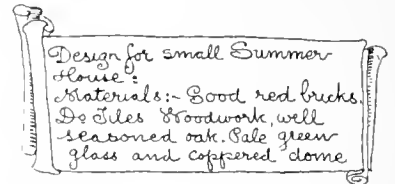 Design for small Summer
House:
Materials:- Good red bricks.
Do Tiles Woodwork, well
seasoned oak. Pale green
glass and coppered dome